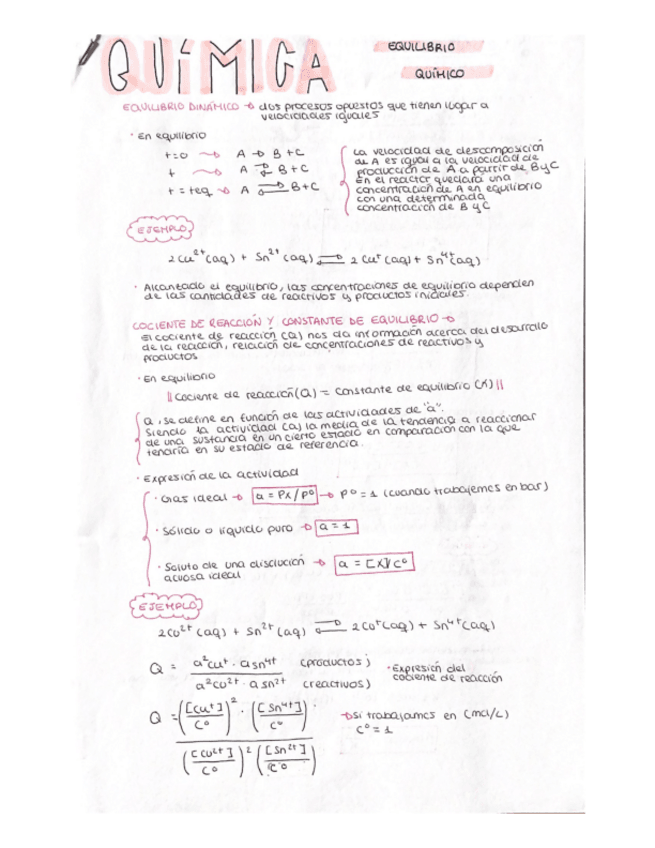 QUÍMICA
EQUILIBRIO
QUÍMICO
EQUILIBRIO DINÁMICO → dos procesos opuestos que tienen lugar a
velocidades iguales
· En equilibrio
t=0 → A → B+C
t → A ⇄ B+C
t = teq → A ⇄ B+C
La velocidad de descomposición
de A es igual a la velocidad de
producción de A a partir de B y C
En el reactor quedará una
concentración de A en equilibrio
con una determinada
concentración de B y C
EJEMPLO
2Cu²⁺(aq) + Sn²⁺(aq) ⇄ 2Cu⁺(aq) + Sn⁴⁺(aq)
· Alcanzado el equilibrio, las concentraciones de equilibrio dependen
de las cantidades de reactivos y productos iniciales.
COCIENTE DE REACCIÓN Y CONSTANTE DE EQUILIBRIO →
El cociente de reacción (Q) nos da información acerca del desarrollo
de la reacción, relación de concentraciones de reactivos y
productos
· En equilibrio
|| Cociente de reacción (Q) = Constante de equilibrio (K) ||
Q, se define en función de las actividades de "a".
Siendo la actividad (a) la media de la tendencia a reaccionar
de una sustancia en un cierto estado en comparación con la que
tenaría en su estado de referencia.
· Expresión de la actividad
· Gas ideal → a = Px/P⁰ → P⁰ = 1 (cuando trabajemos en bar)
· Sólido o líquido puro → a = 1
· Soluto de una disolución → a = [X]/C⁰
acuosa ideal
EJEMPLO
2Cu²⁺(aq) + Sn²⁺(aq) ⇄ 2Cu⁺(aq) + Sn⁴⁺(aq)
Q = a²Cu⁺ · aSn⁴⁺ (productos)
a²Cu²⁺ · aSn²⁺ (reactivos)
· Expresión del
cociente de reacción
Q = ([Cu⁺]/C⁰)² · ([Sn⁴⁺]/C⁰)
([Cu²⁺]/C⁰)² ([Sn²⁺]/C⁰)
→ si trabajamos en (mol/L)
C⁰ = 1